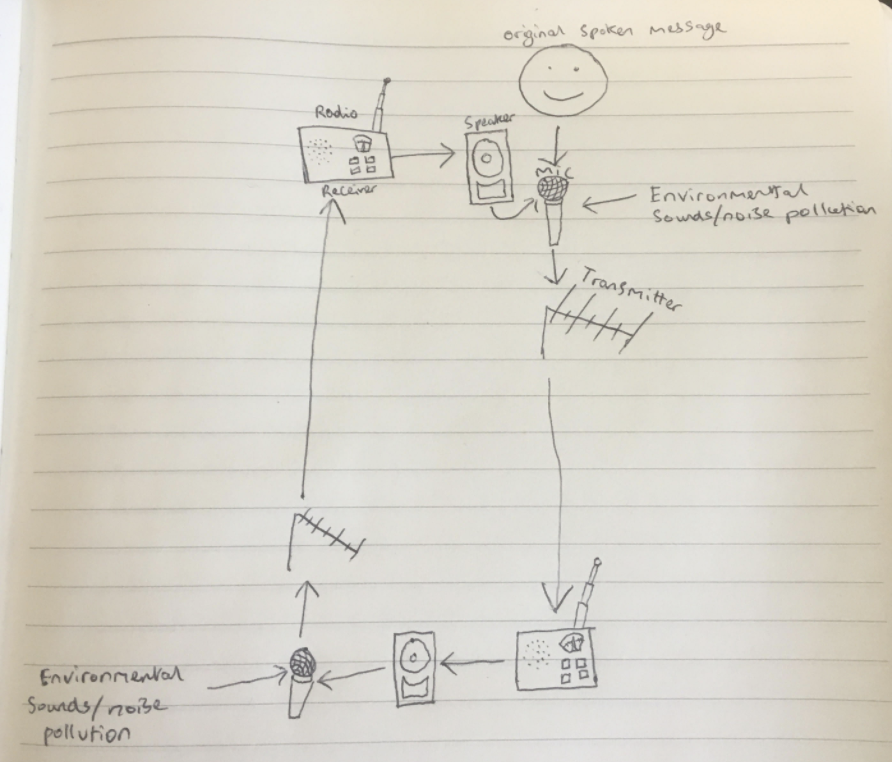 original spoken message
Radio
Speaker
Mic
Receiver
Environmental
Sounds/noise pollution
Transmitter
Environmental
Sounds/noise
pollution